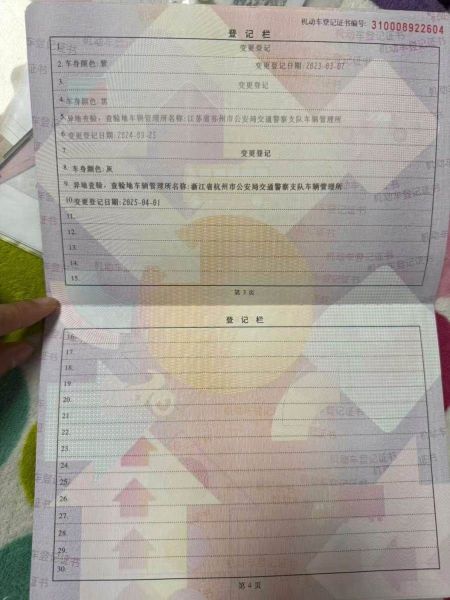 机动车登记证书编号: 310008922604
登 记 栏
1. 变更登记
2. 车身颜色:紫 变更登记日期:2023-03-07
3. 变更登记
4. 车身颜色:黑
5. 异地查验, 查验地车辆管理所名称:江苏省苏州市公安局交通警察支队车辆管理所
6. 变更登记日期:2024-09-25
7. 变更登记
8. 车身颜色:灰
9. 异地查验, 查验地车辆管理所名称:浙江省杭州市公安局交通警察支队车辆管理所
10. 变更登记日期:2025-04-01
11.
12.
13.
14.
15.
第 3 页
登 记 栏
16.
17.
18.
19.
20.
21.
22.
23.
24.
25.
26.
27.
28.
29.
30.
第 4 页